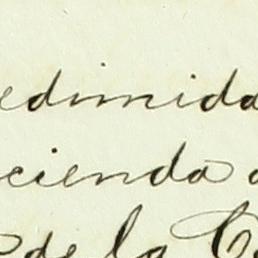 edimida
cienda a
de la C